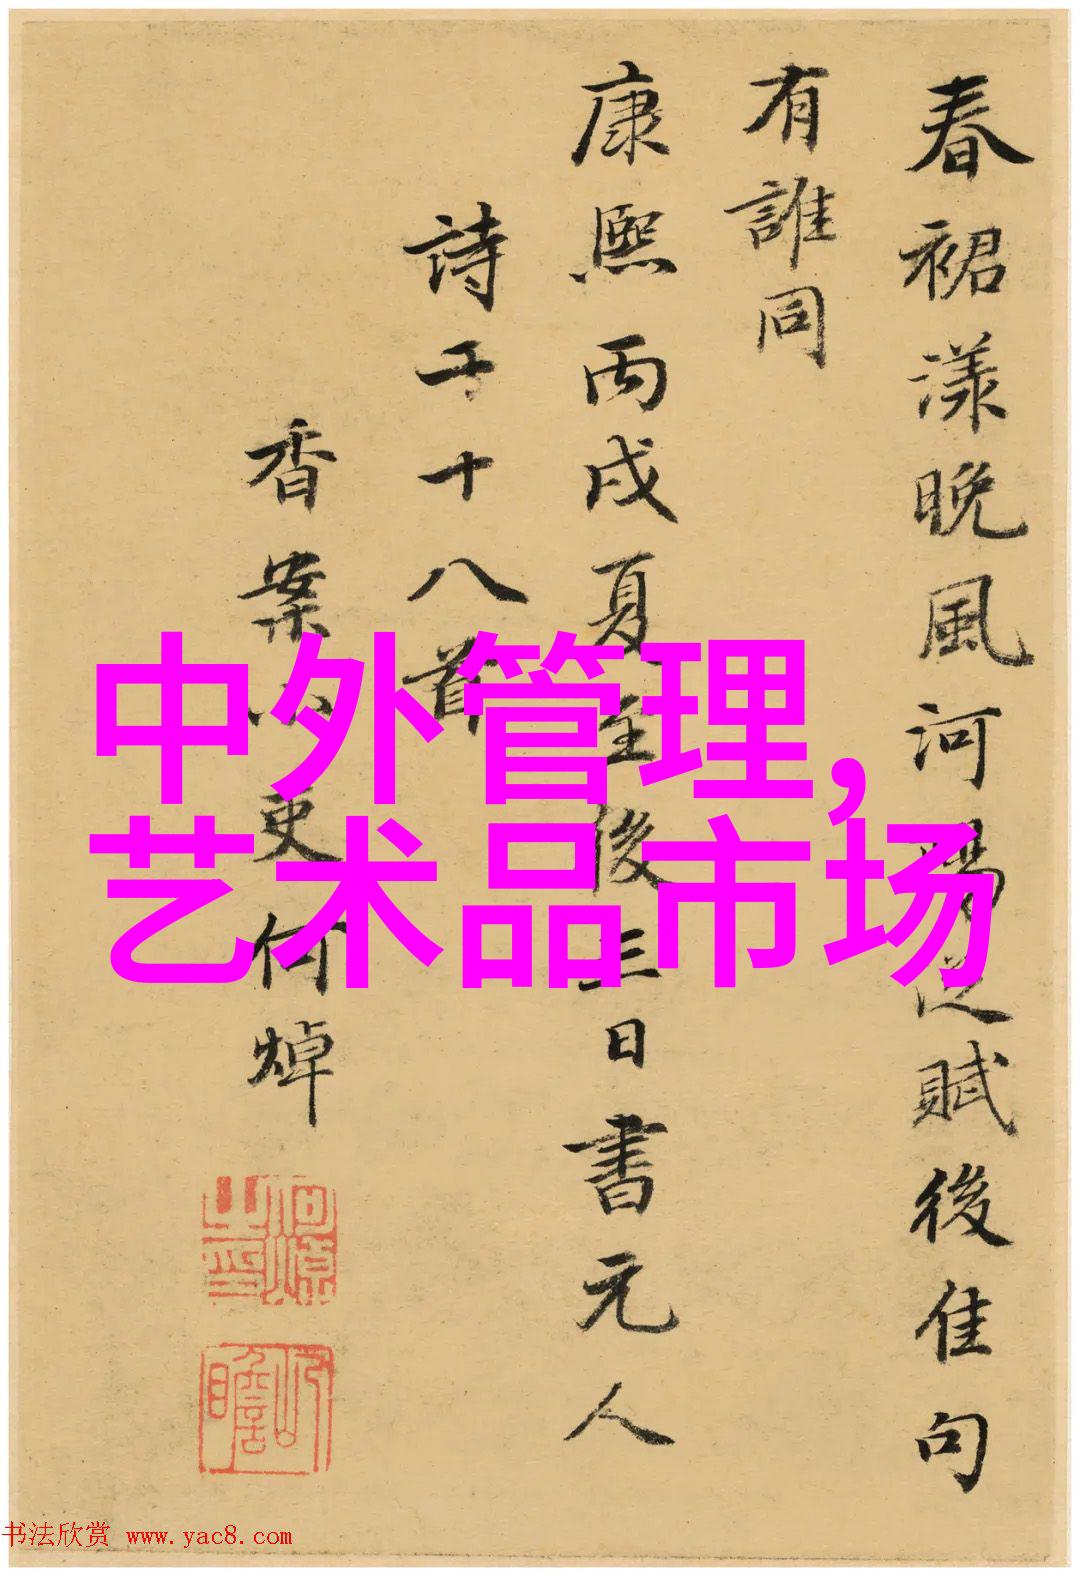 春裙漾晚風河陽從賦後佳句
有誰同
康熙丙戌夏至後三日書元人
詩二十八首
香案小吏何焯
中外管理,
艺术品市场
书法欣赏 www.yac8.com